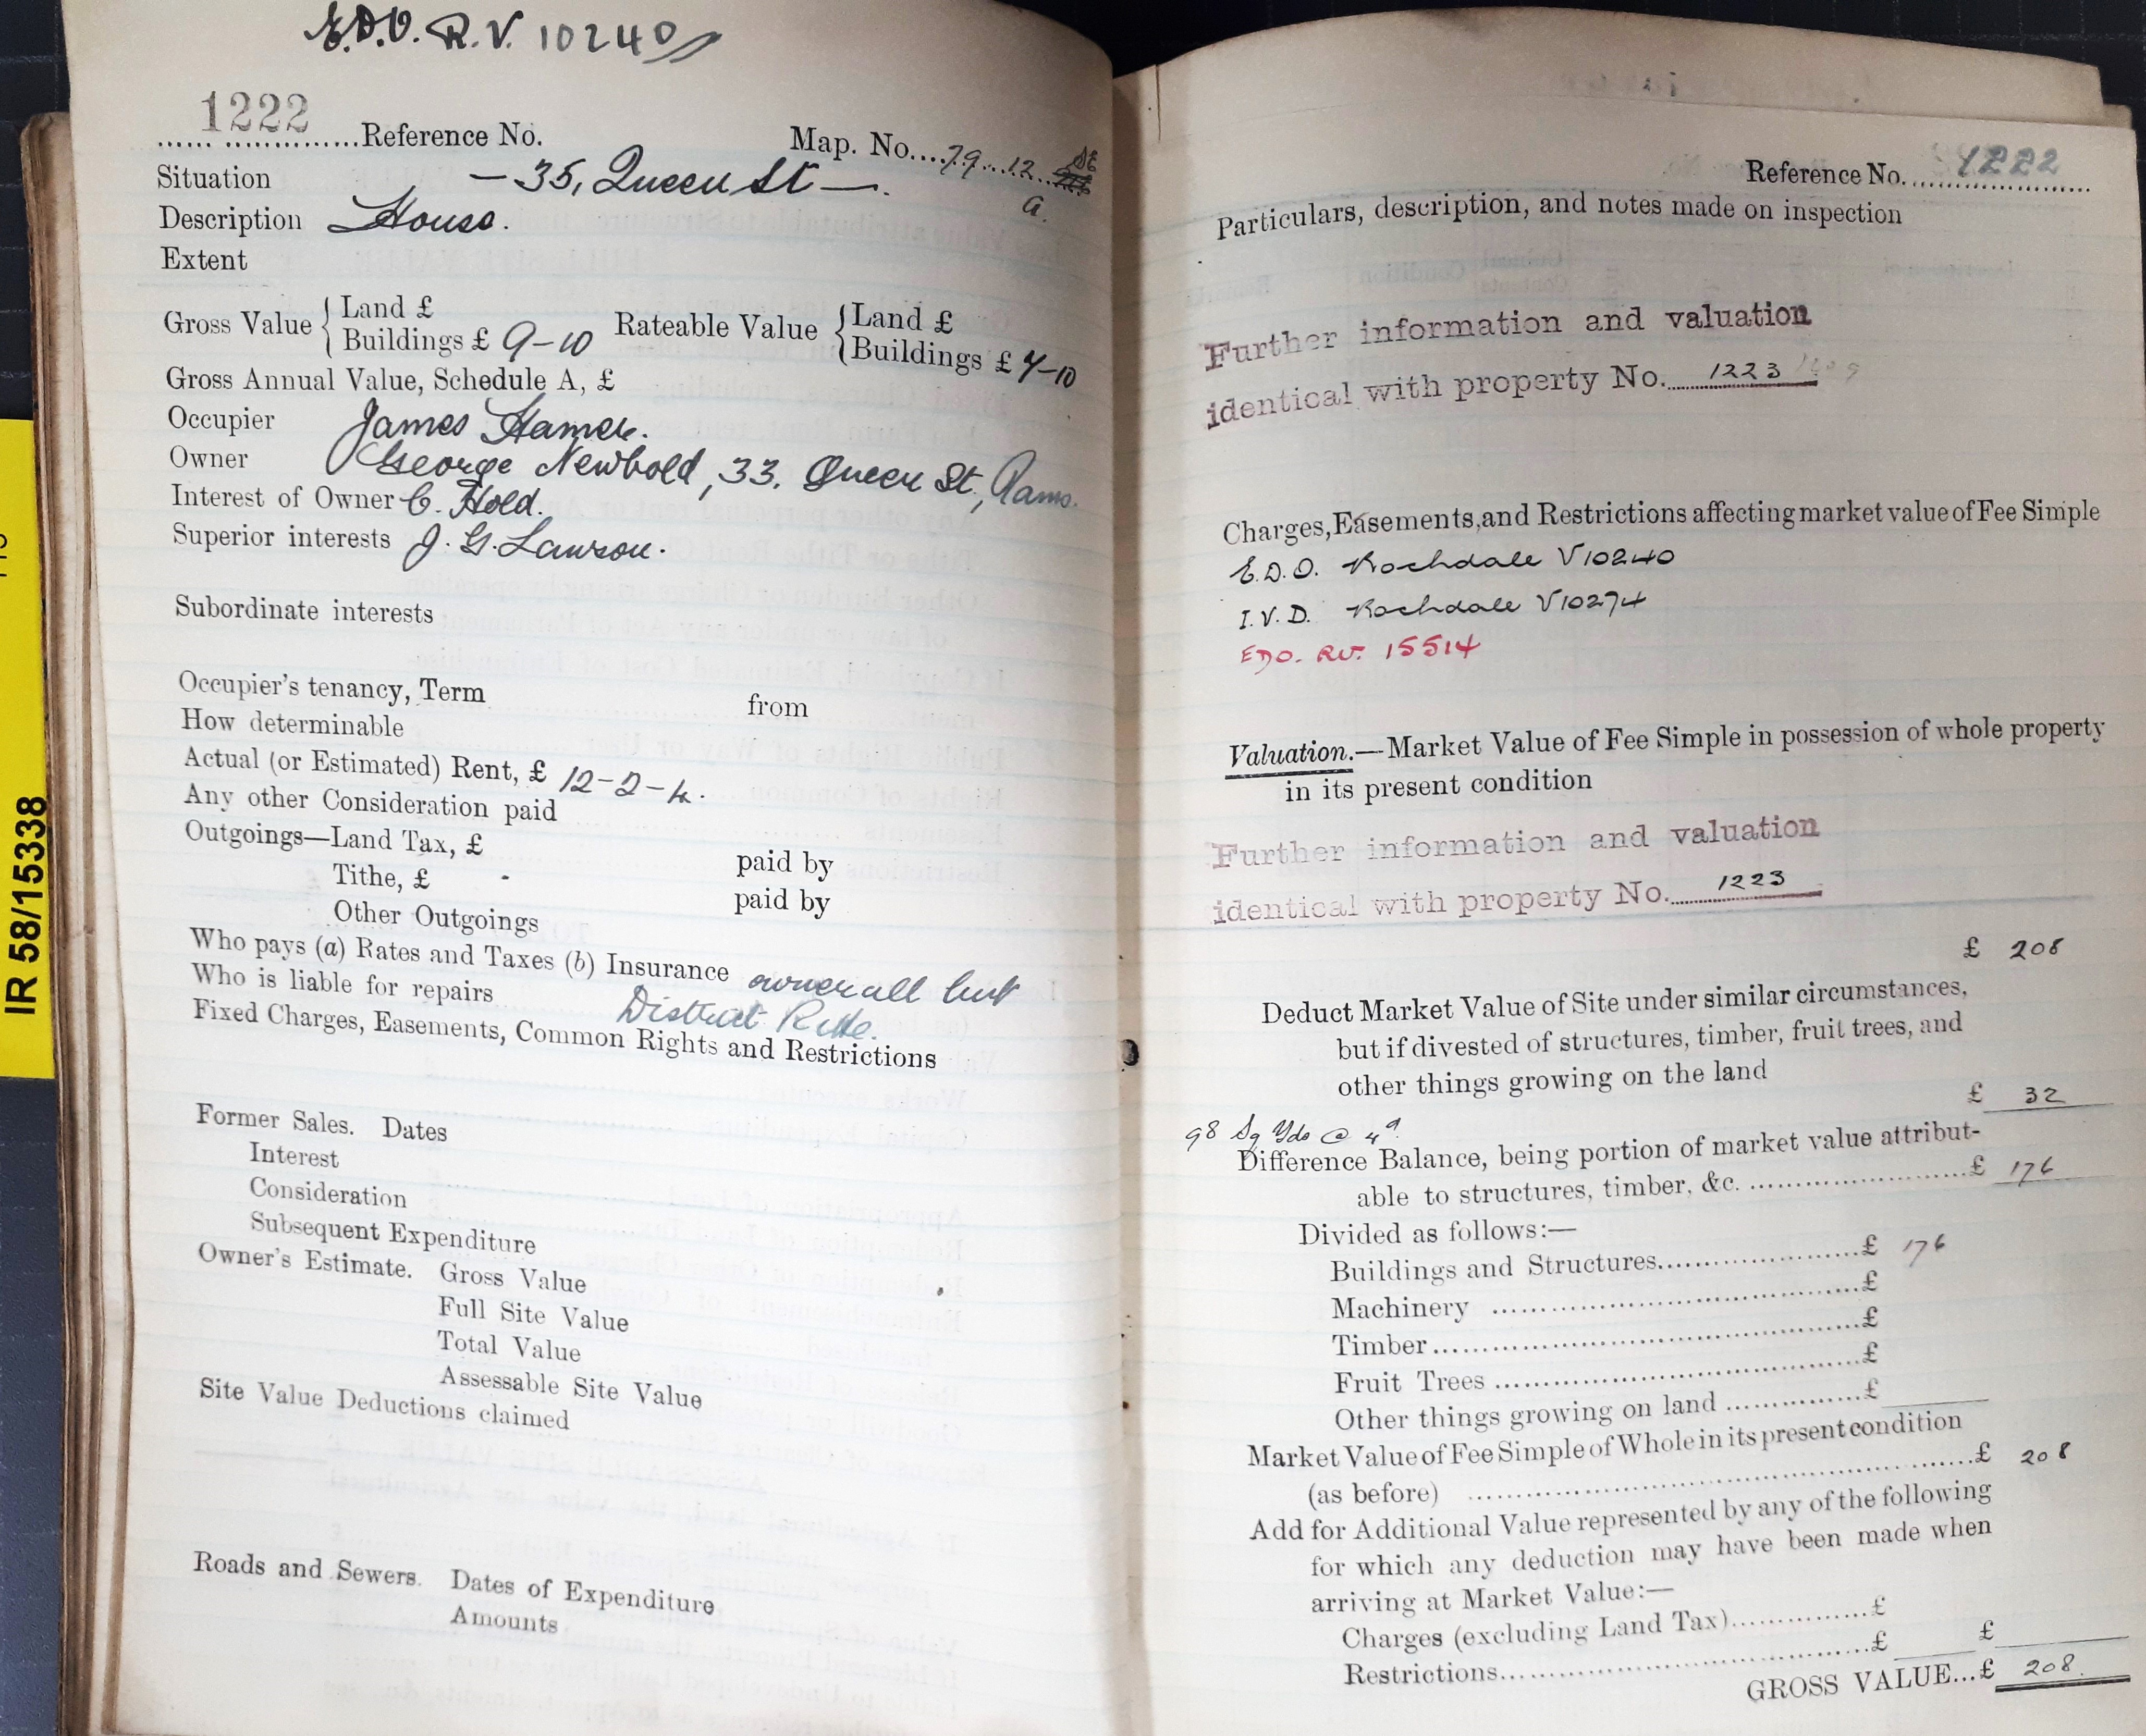 E.D.O. R.V. 10240
1222
Reference No. Map. No. 79.12
a.
Situation – 35, Queen St –.
Description House.
Extent
Gross Value { Land £ Rateable Value { Land £
Buildings £ 9-10 Buildings £ 7-10
Gross Annual Value, Schedule A, £
Occupier James Hamer.
Owner George Newbold, 33. Queen St, Rams.
Interest of Owner C. Hold.
Superior interests J. G. Lawson.
Subordinate interests
Occupier's tenancy, Term from
How determinable
Actual (or Estimated) Rent, £ 12-2-4.
Any other Consideration paid
Outgoings—Land Tax, £ paid by
Tithe, £ paid by
Other Outgoings
Who pays (a) Rates and Taxes (b) Insurance owner all but
Who is liable for repairs District Rate.
Fixed Charges, Easements, Common Rights and Restrictions
Former Sales. Dates
Interest
Consideration
Subsequent Expenditure
Owner's Estimate. Gross Value
Full Site Value
Total Value
Assessable Site Value
Site Value Deductions claimed
Roads and Sewers. Dates of Expenditure
Amounts
IR 58/15338
Reference No. 1222
Particulars, description, and notes made on inspection
Further information and valuation
identical with property No. 1223
Charges, Easements, and Restrictions affecting market value of Fee Simple
E.D.O. Rochdale V10240
I.V.D. Rochdale V10274
EDO. RV. 15514
Valuation.—Market Value of Fee Simple in possession of whole property
in its present condition
Further information and valuation
identical with property No. 1223
£ 208
Deduct Market Value of Site under similar circumstances,
but if divested of structures, timber, fruit trees, and
other things growing on the land
£ 32
98 Sq Yds @ 4d
Difference Balance, being portion of market value attribut-
able to structures, timber, &c. £ 176
Divided as follows:—
Buildings and Structures £ 176
Machinery £
Timber £
Fruit Trees £
Other things growing on land £
Market Value of Fee Simple of Whole in its present condition
(as before) £ 208
Add for Additional Value represented by any of the following
for which any deduction may have been made when
arriving at Market Value:—
Charges (excluding Land Tax) £
Restrictions £ £
GROSS VALUE...£ 208.